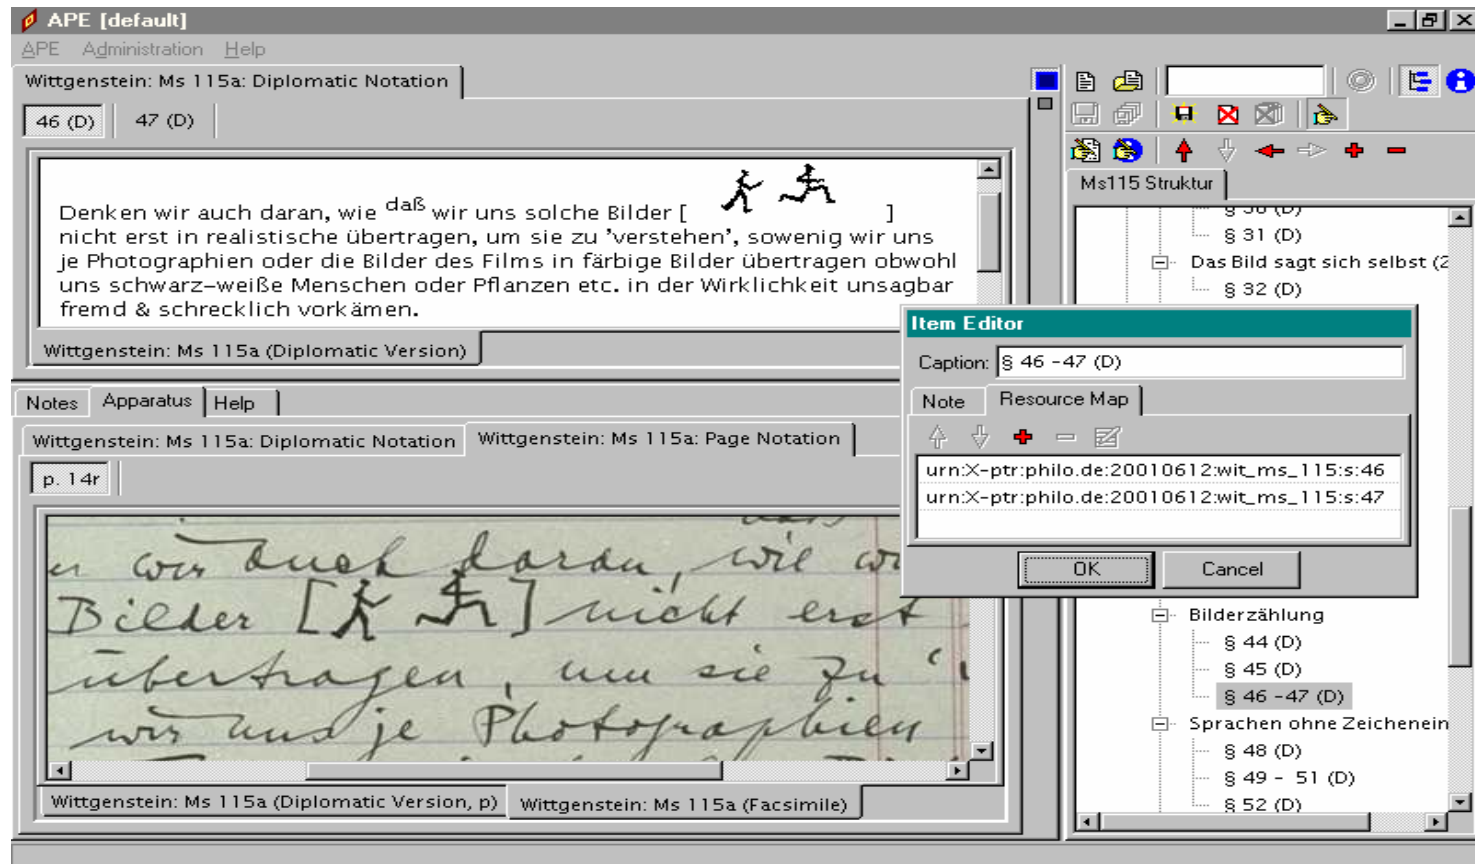 APE [default]
APE Administration Help
Wittgenstein: Ms 115a: Diplomatic Notation
46 (D) 47 (D)
Denken wir auch daran, wie daß wir uns solche Bilder [ ]
nicht erst in realistische übertragen, um sie zu 'verstehen', sowenig wir uns
je Photographien oder die Bilder des Films in färbige Bilder übertragen obwohl
uns schwarz-weiße Menschen oder Pflanzen etc. in der Wirklichkeit unsagbar
fremd & schrecklich vorkämen.
Wittgenstein: Ms 115a (Diplomatic Version)
Notes Apparatus Help
Wittgenstein: Ms 115a: Diplomatic Notation Wittgenstein: Ms 115a: Page Notation
p. 14r
wir auch daran, wie
Bilder [ ] nicht erst
übertragen, um sie zu
wir uns je Photographien
Wittgenstein: Ms 115a (Diplomatic Version, p) Wittgenstein: Ms 115a (Facsimile)
Ms115 Struktur
§ 31 (D)
Das Bild sagt sich selbst (2
§ 32 (D)
Item Editor
Caption: § 46 -47 (D)
Note Resource Map
urn:X-ptr:philo.de:20010612:wit_ms_115:s:46
urn:X-ptr:philo.de:20010612:wit_ms_115:s:47
OK Cancel
Bilderzählung
§ 44 (D)
§ 45 (D)
§ 46 -47 (D)
Sprachen ohne Zeichenein
§ 48 (D)
§ 49 - 51 (D)
§ 52 (D)